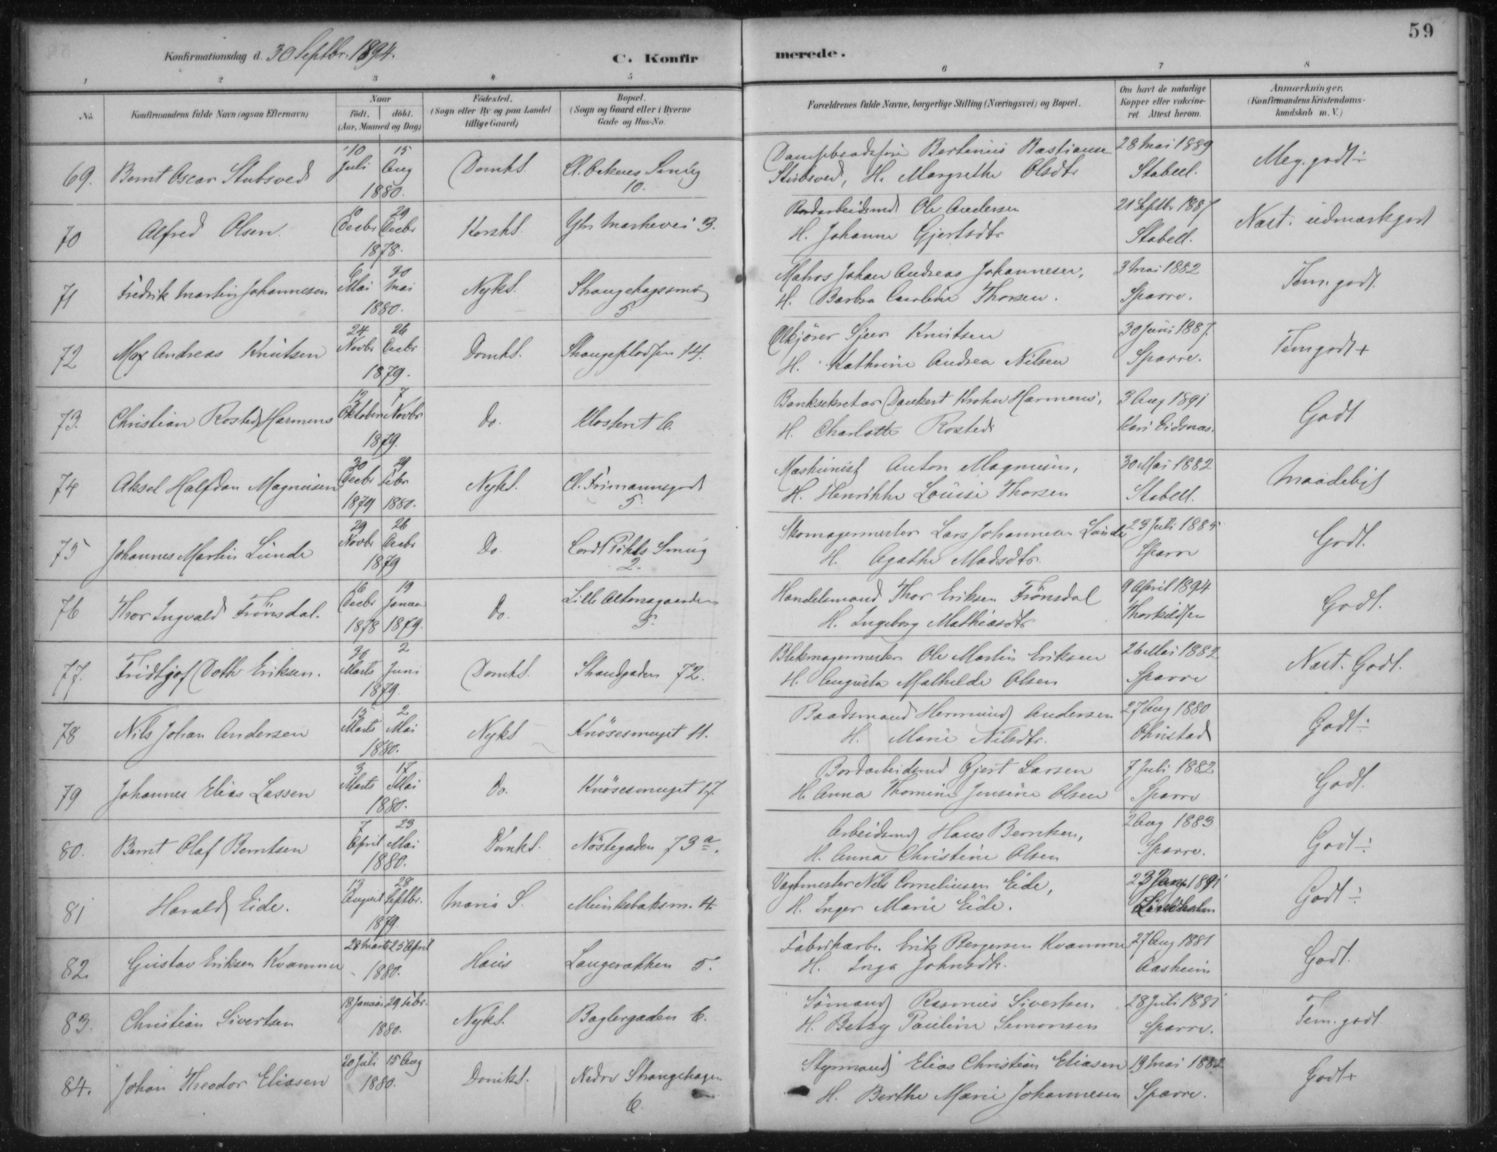 59
Konfirmationsdag d. 30 Septbr. 1894.
C. Konfir merede.
1 2 3 4 5 6 7 8
No.
Konfirmandens fulde Navn (ogsaa Efternavn)
Naar
født. døbt.
(Aar, Maaned og Dag)
Fødested.
(Sogn eller By og paa Landet
tillige Gaard)
Bopæl.
(Sogn og Gaard eller i Byerne
Gade og Hus-No.
Forældrenes fulde Navne, borgerlige Stilling (Næringsvei) og Bopæl.
Om havt de naturlige
Kopper eller vaksine-
ret. Attest herom.
Anmærkninger.
(Konfirmandens Kristendoms-
kundskab m. V.)
69. Bernt Oscar Stubsved 10 Juli 15 Aug 1880. Domk S. Smug 10. Bertinius Bastiansen 28 Mai 1889
Stubsved, H. Margrethe Olsdtr Stabell. Meg. godt ÷
70 Alfred Olsen Decbr 29 Decbr 1878. Korsk S. Markevei 3. Bordarbeidsmd Ole Andersen 21 Septbr 1887
H. Johanne Gjertsdtr Stabell. Næst. udmærket godt
71 Fredrik Martin Johannesen Mai 30 Mai 1880. Nyk S. Strangehagsmug 5 Matros Johan Andreas Johannesen, 3 Mai 1882
H. Barbra Caroline Thorsen. Sparre. Tem. godt.
72 Max Andreas Knutsen 24 Novbr 26 Decbr 1879. Domk S. 14. Knutsen 30 Juni 1887.
H. Kathrine Andrea Nilsen Sparre. Temgodt +
73. Christian Rosted Harmens Oktober 7 Novbr 1879. Do. Klosteret 6. Banksekretær Danckert Krohn Harmens, 3 Aug 1891
H. Charlotte Rosted. Kari Eidsnæs. Godt
74 Aksel Halfdan Magnusen 30 Decbr 29 Febr 1879 1880. Nyk S. 5. Maskinist Anton Magnusen, 30 Mai 1882
H. Henrikke Louise Thorsen Stabell. Maadelig
75 Johannes Martin Lunde 29 Novbr 26 Decbr 1879 Do Cordt Pihls Smug 2. Skomagermester Lars Johannesen Lunde 23 Juli 1885
H. Agathe Madsdtr. Sparre Godt.
76 Thor Ingvald Frønsdal. Decbr 19 Januar 1878 1879. Do. Lille Altonagaarden 5. Handelsmand Thor Eriksen Frønsdal 9 April 1894
H. Ingeborg Mathiasdtr Thorkildsen Godt.
77. Fridtjof Doth Eriksen. Marts 2 Juni 1879. Domk S. Strandgaden 72. Blikmagermester Ole Martin Eriksen 26 Mai 1882
H. Augusta Mathilde Olsen Sparre Næst. Godt.
78 Nils Johan Andersen 15 Marts 2 Mai 1880. Nyk S Knøsesmuget 11. Baadsmand Hermund Andersen 27 Aug 1880
H. Marie Nilsdtr. Godt ÷
79 Johannes Elias Lassen 3 Marts 17 Mai 1880. Do. Knøsesmuget 17. Bordarbeidsmd Gjert Larsen 7 Juli 1882
H. Anna Thomine Jensine Olsen Sparre Godt.
80. Bernt Olaf Berntsen 7 April 23 Mai 1880. Domk S. Nøstegaden 73 a. Arbeidsmd Hans Berntsen, 2 Aug 1883
H. Anna Christine Olsen Sparre. Godt ÷
81 Harald Eide. 13 August 28 Septbr. 1879 Maria S. Munkebæksm. 4. Vagtmester Nils Corneliusen Eide, 23 1891
H. Inger Marie Eide. Lindholm Godt ÷
82. Gustav Eriksen Kvamme 28 Marts 25 April 1880. Haus Langerækken 5. Fabrikarb. Erik Bergersen Kvamme 27 Aug 1881
H. Inga Johnsdtr. Aasheim Godt.
83. Christian Sivertsen 18 Januar 29 Febr. 1880. Nyk S. Baglergaden 6. Sømand Rasmus Sivertsen, 28 Juli 1881
H. Betzy Pauline Simonsen Sparre. Tem. godt
84. Johan Theodor Eliasen 20 Juli 15 Aug 1880. Domk S. Nedre Strangehagen 6. Styrmand Elias Christian Eliasen 19 Mai 1882
H. Berthe Marie Johannesen Sparre. Godt +